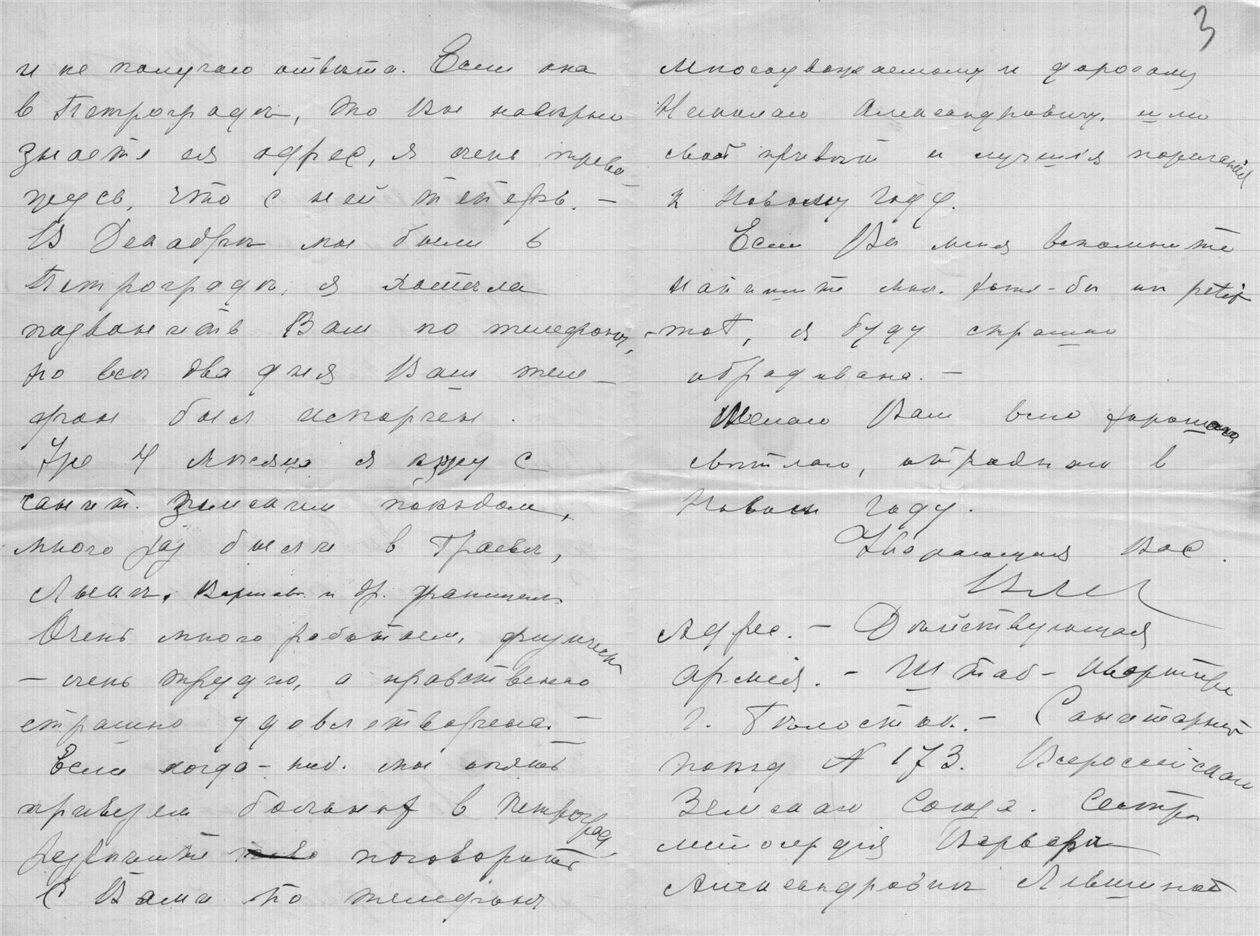 3
и не получаю отвѣта. Если она
в Петроградѣ, то Вы навѣрно
знаете ея адрес, я очень трево-
жусь, что с ней теперь. —
В Декабрѣ мы были в
Петроградѣ, я хотѣла
позвонить Вам по телефону,
но всѣ два дня Ваш теле-
фон был испорчен.
Уже 4 мѣсяца я езжу с
санит. земским поѣздом,
много раз были в Граевѣ,
Лыкѣ, Варшавѣ и др. границам
Очень много работаем, физически
— очень трудно, а нравственно
страшно удовлетворена. —
Если когда-ниб. мы опять
привезем больных в Петроград
разрѣшите поговорить
с Вами по телефону
Многоуважаемому и дорогому
Николаю Александровичу шлю
свой привѣт и лучшія пожеланія
к Новому Году.
Если Вы меня вспомните
напишите мнѣ хотя-бы un petit
mot, я буду страшно
обрадована. —
Желаю Вам всего хорошаго
свѣтлаго, отраднаго в
Новом Году.
Уважающая Вас.
Адрес. — Дѣйствующая
Армія. — Штаб-квартира
г. Бѣлосток. — Санитарный
поѣзд N 173. Всероссійскаго
Земскаго Союза. Сестрѣ
милосердія Варварѣ
Александровнѣ Левшиной